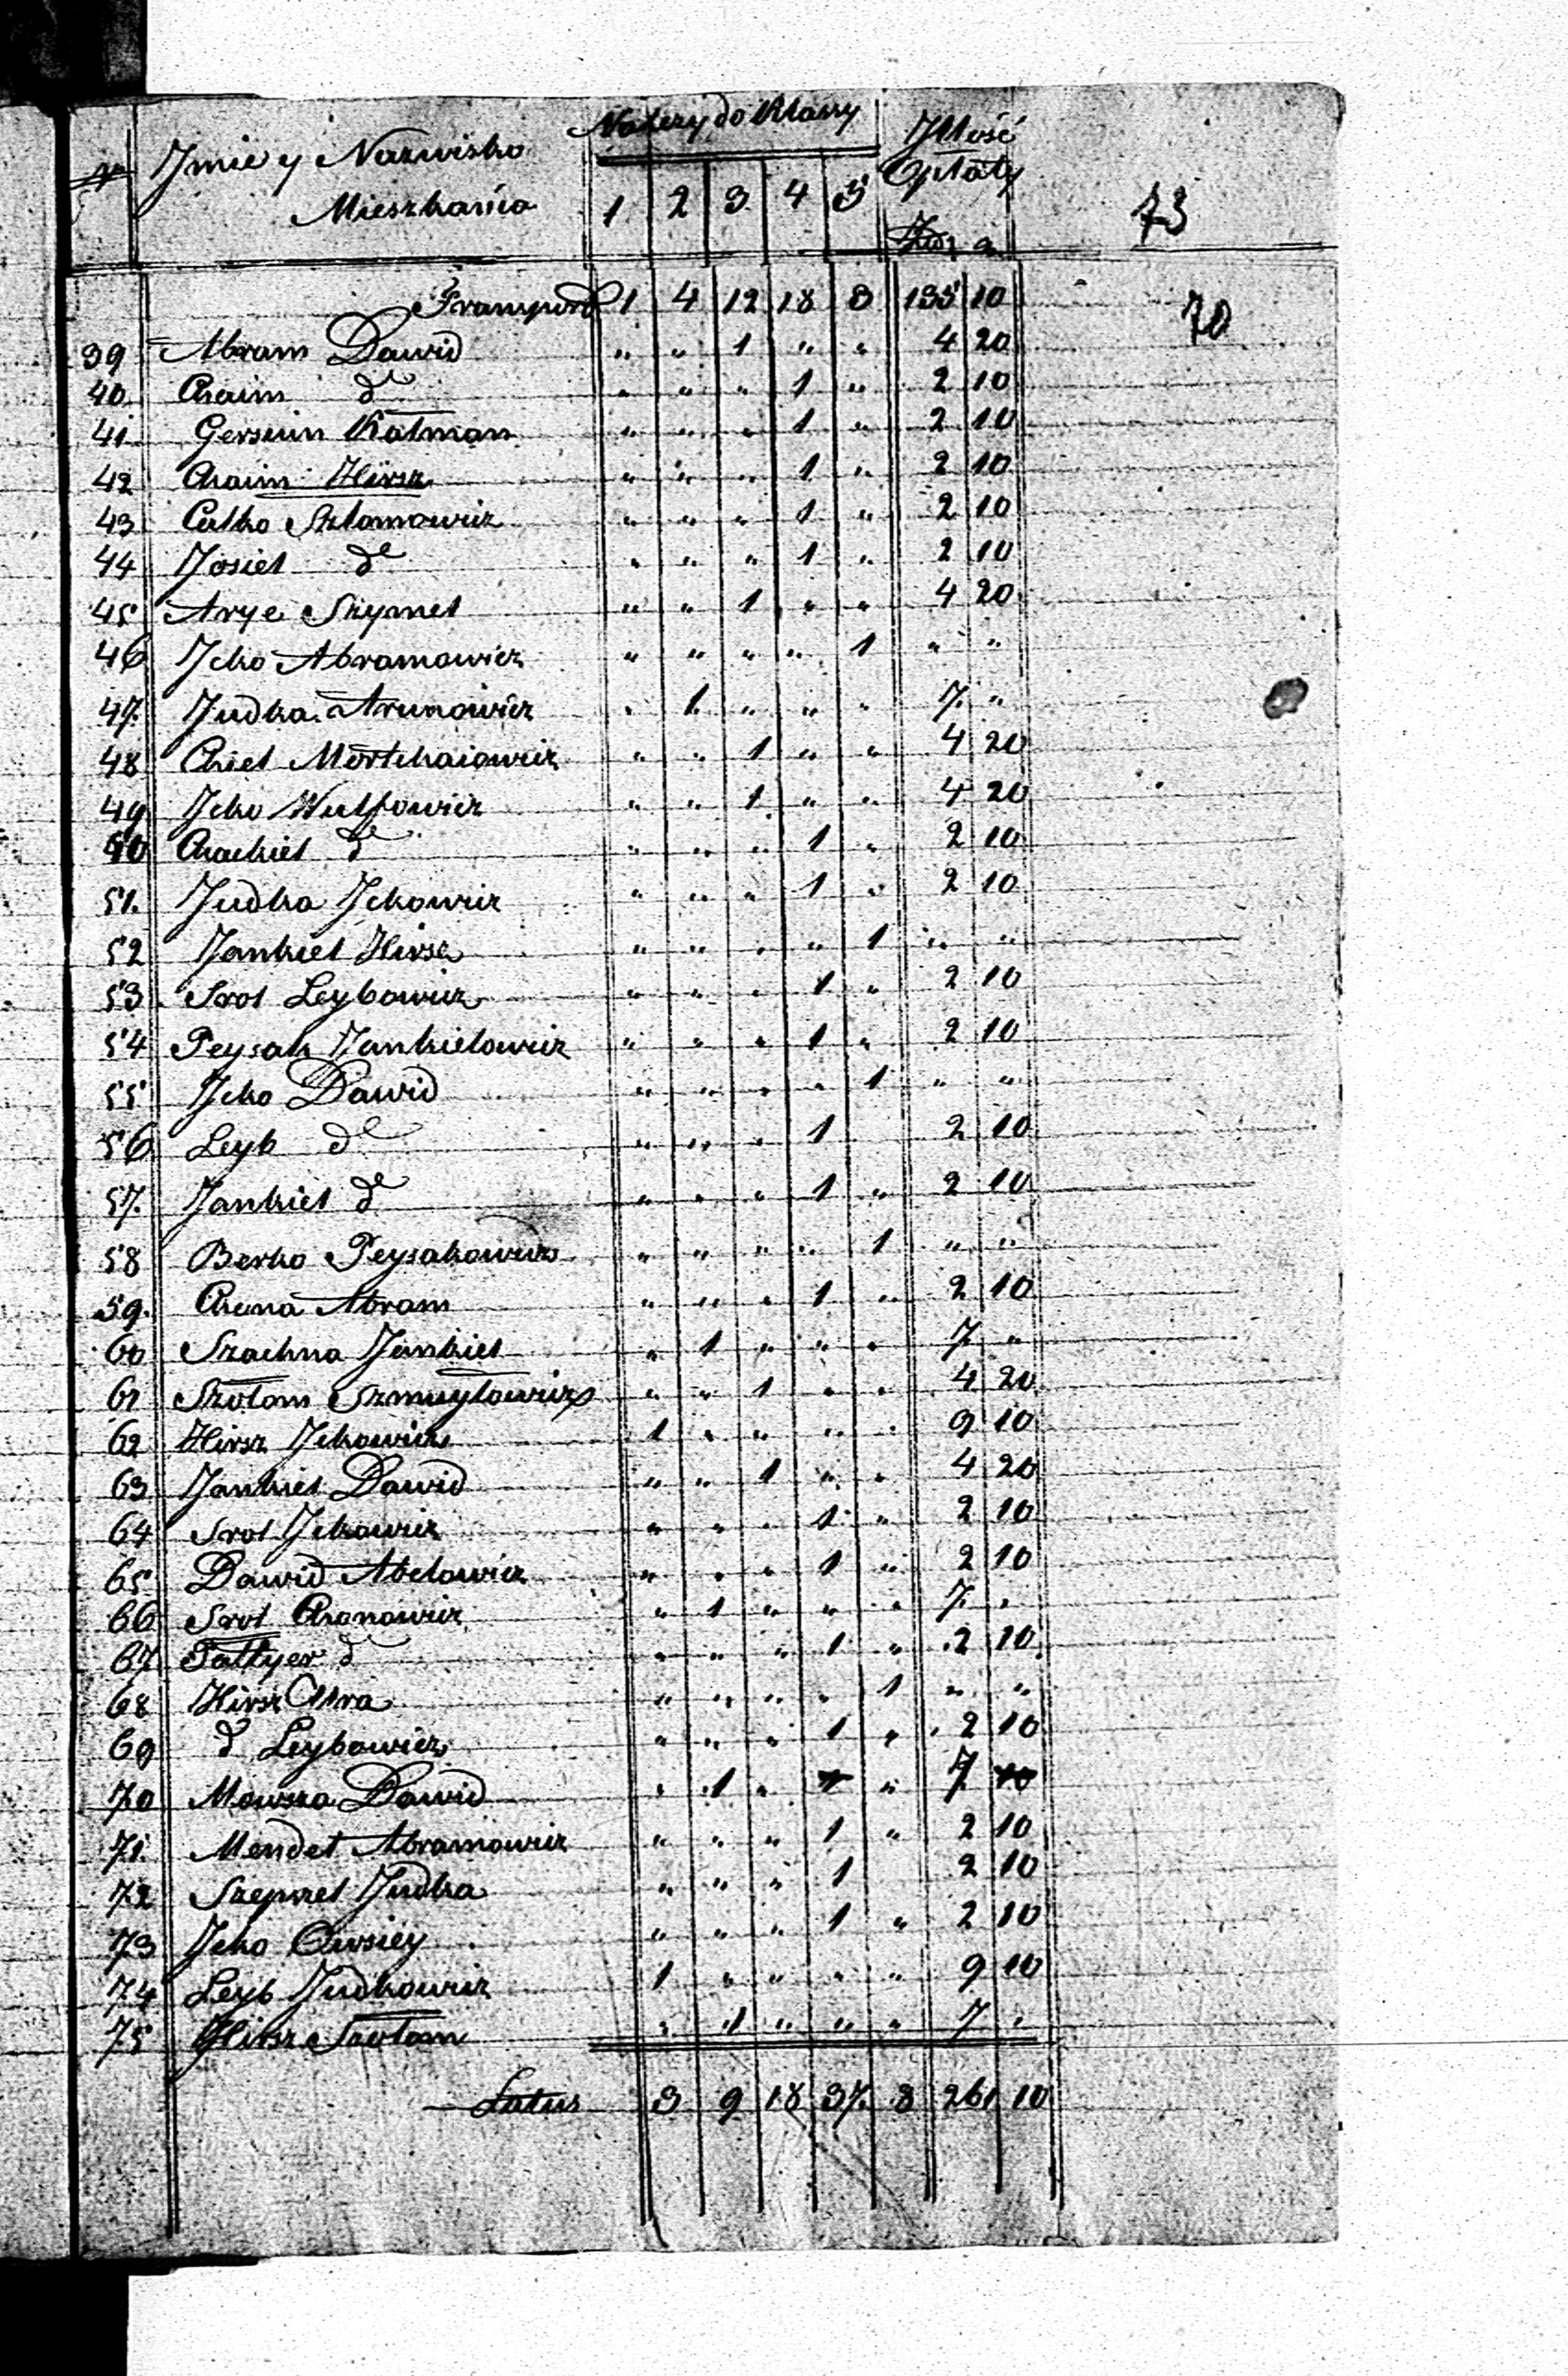 Nro Jmie y Nazwisko Mieszkańca Należy do Klassy 1 2 3 4 5 Jllość Opłaty Złoty g 73
Transport 1 4 12 18 3 135 10 70
39 Abram Dawid " " 1 " " 4 20
40 Chaim dº " " " 1 " 2 10
41 Gerszun Kalman " " " 1 " 2 10
42 Chaim Hirsz " " " 1 " 2 10
43 Calko Szlomowicz " " " 1 " 2 10
44 Josiel dº " " " 1 " 2 10
45 Arye Szymel " " 1 " " 4 20
46 Jcko Abramowicz " " " " 1 " "
47 Judka Arunowicz " 1 " " " 7 "
48 Chiel Mortchaiowicz " " 1 " " 4 20
49 Jcko Wulfowicz " " 1 " " 4 20
50 Chackiel dº " " " 1 " 2 10
51 Judka Jckowicz " " " 1 " 2 10
52 Jankiel Hirsz " " " " 1 " "
53 Srol Leybowicz " " " 1 " 2 10
54 Peysak Jankielowicz " " " 1 " 2 10
55 Jcko Dawid " " " " 1 " "
56 Leyb dº " " " 1 2 10
57 Jankiel dº " " " 1 " 2 10
58 Berko Peysakowicz " " " " 1 " "
59 Chuna Abram " " " 1 " 2 10
60 Szachna Jankiel " 1 " " " 7 "
61 Szolom Szmuylowicz " " 1 " " 4 20
62 Hirsz Jckowicz 1 " " " " 9 10
63 Jankiel Dawid " " 1 " " 4 20
64 Srol Jckowicz " " " 1 " 2 10
65 Dawid Abelowicz " " " 1 " 2 10
66 Srol Chonowicz " 1 " " " 7 "
67 Paltyer dº " " " 1 " 2 10
68 Hirsz " " " " 1 " "
69 dº Leybowicz " " " 1 " 2 10
70 Mowsza Dawid " 1 " 1 " 7 10
71 Mendel Abramowicz " " " 1 " 2 10
72 Szepszel Judka " " " 1 2 10
73 Jcko Owsiey " " " 1 " 2 10
74 Leyb Judkowicz 1 " " " " 9 10
75 Hirsz Szolom " 1 " " " 7 "
Latus 3 9 18 37 8 261 10